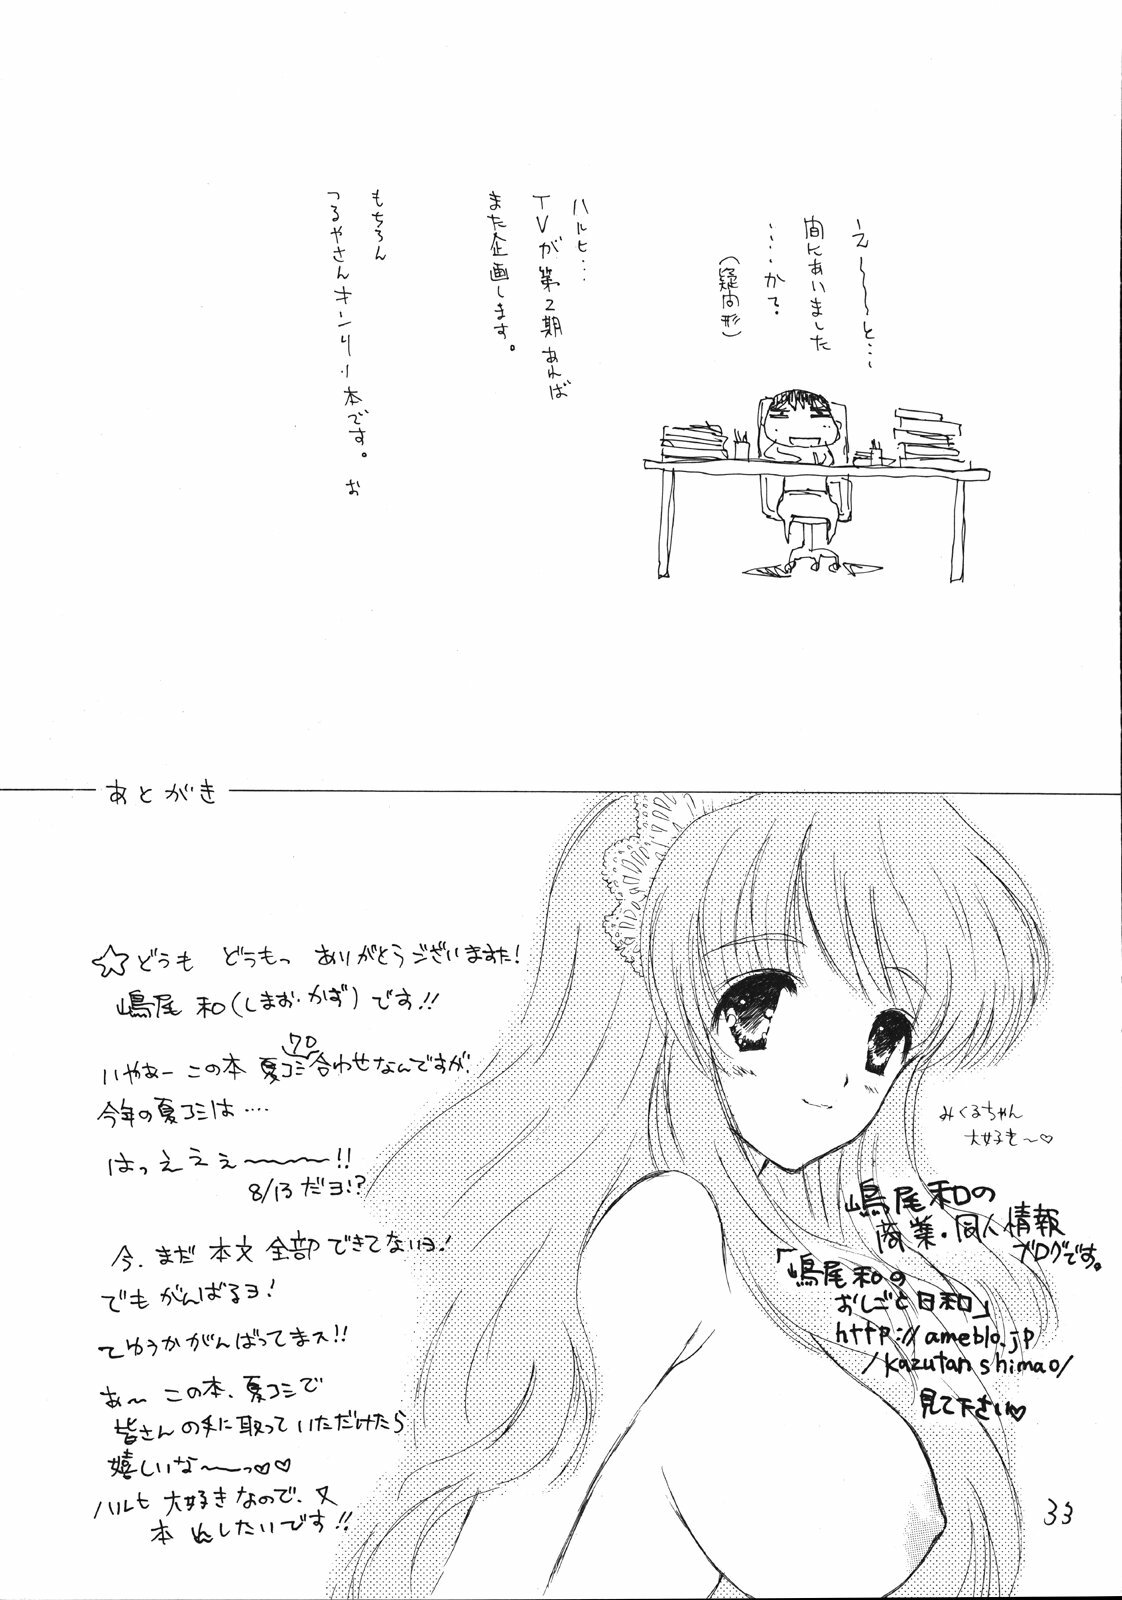 え〜〜〜と…
間にあいました
……か?
(疑問形)
ハルヒ…
TVが第2期あれば
また企画します。
もちろん
つるやさんオンリー本です。 お
あとがき
☆どうも どうもっ ありがとうございますた!
嶋尾 和(しまお・かず)です!!
いやぁー この本 夏コミ70合わせなんですが、
今年の夏コミは‥‥
はっええぇ〜〜〜!!
8/13だヨ!?
今、まだ 本文 全部できてないヨ!
でもがんばるヨ!
てゆうかがんばってまス!!
あ〜 この本、夏コミで
皆さんの手に取っていただけたら
嬉しいな〜〜っ♡♡
ハルヒ 大好きなので、又
本 したいです!!
みくるちゃん
大好き〜♡
嶋尾和の
商業・同人情報
ブログです。
「嶋尾和の
おしごと日和」
http://ameblo.jp
/kazutanshimao/
見て下さい♡
33